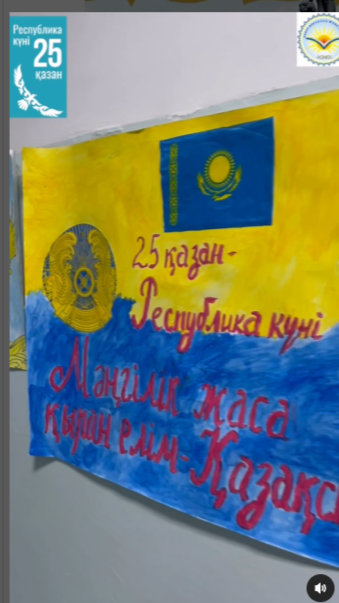 Республика
күні
25
қазан
25 қазан-
Республика күні
Мәңгілік жаса
қыран елім-Қазақс